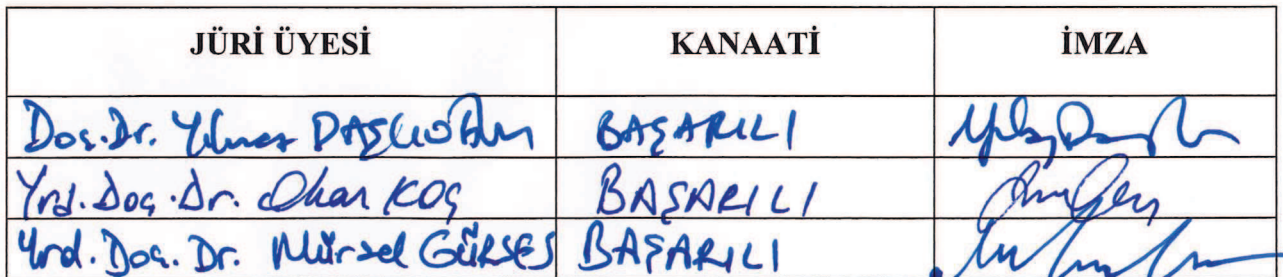 JÜRİ ÜYESİ KANAATİ İMZA
Doç.Dr. Yılmaz DAŞÇIOĞLU BAŞARILI
Yrd.Doç.Dr. Okan KOÇ BAŞARILI
Yrd.Doç.Dr. Mürsel GÜRSES BAŞARILI